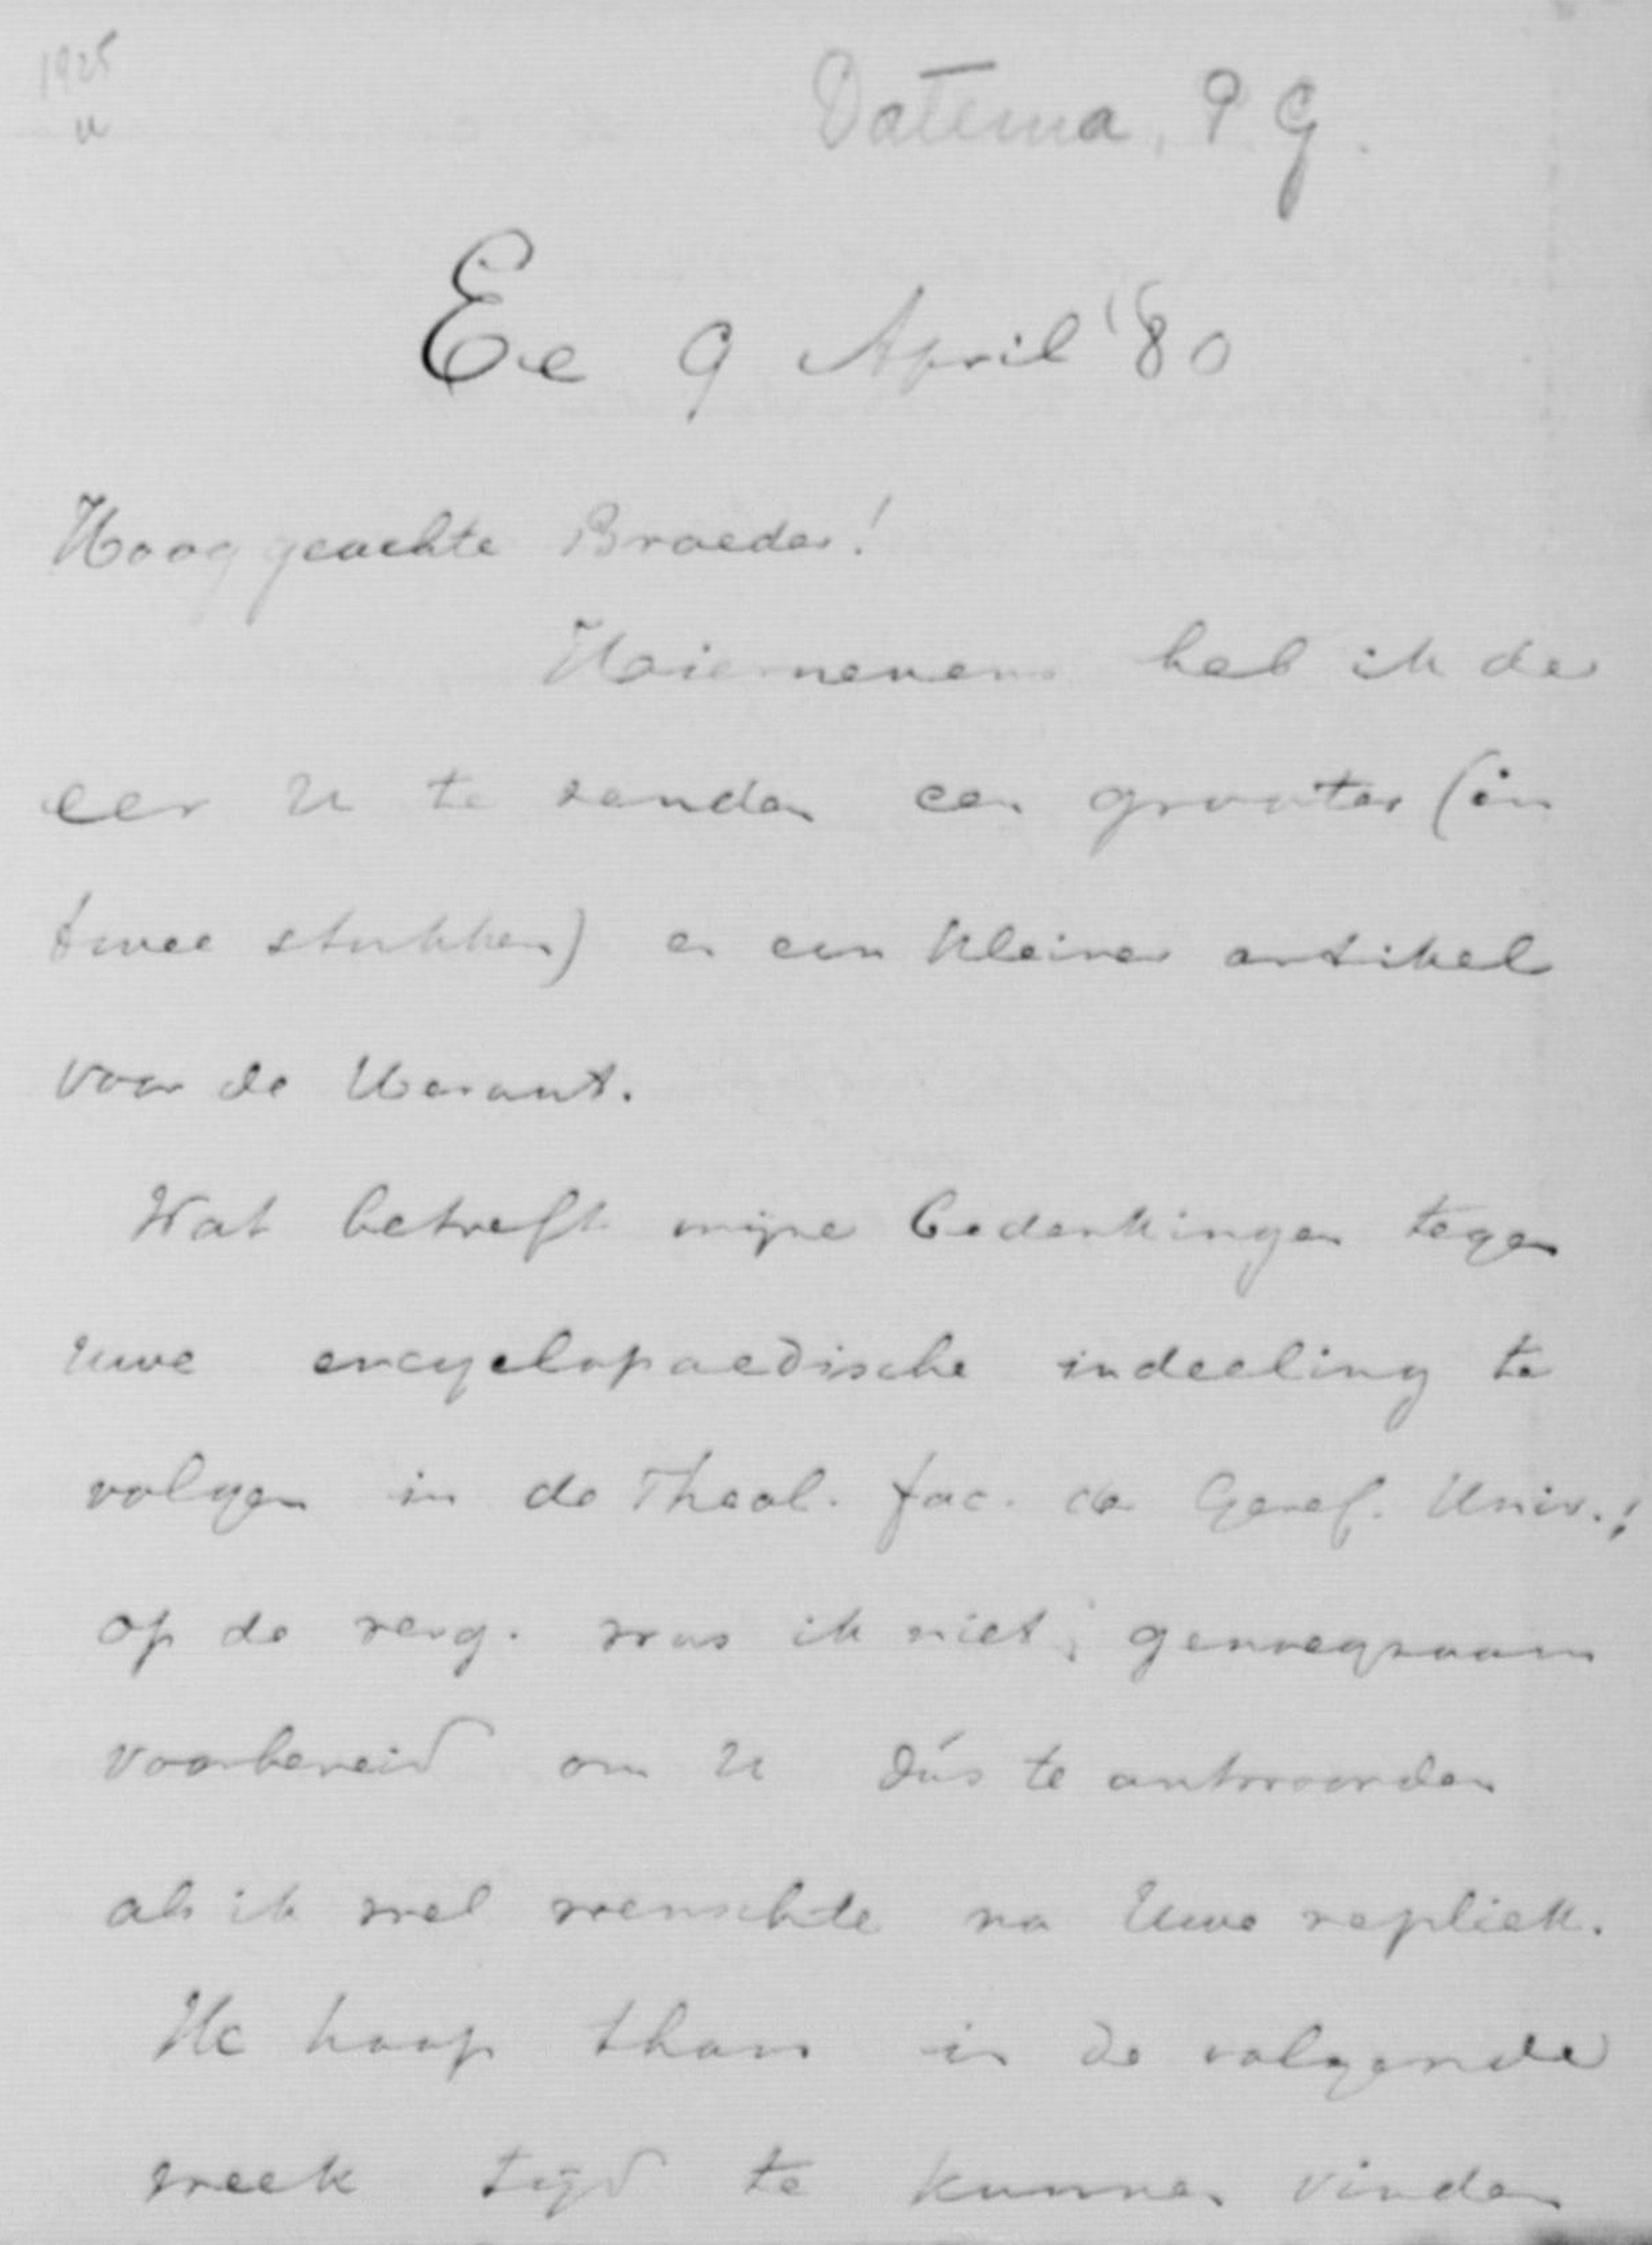 1925
u
Datema, P. G.
Ee 9 April '80
Hooggeachte Broeder!
Hiernevens heb ik de
eer U te zenden een grooter (in
twee stukken) en een kleiner artikel
voor de Heraut.
Wat betreft mijne bedenkingen tegen
Uwe encyclopaedische indeeling te
volgen in de Theol. fac. der Geref. Univ.;
op de verg. was ik niet genoegzaam
voorbereid om U dús te antwoorden
als ik wel wenschte na Uwe repliek.
Ik hoop thans in de volgende
week tijd te kunnen vinden